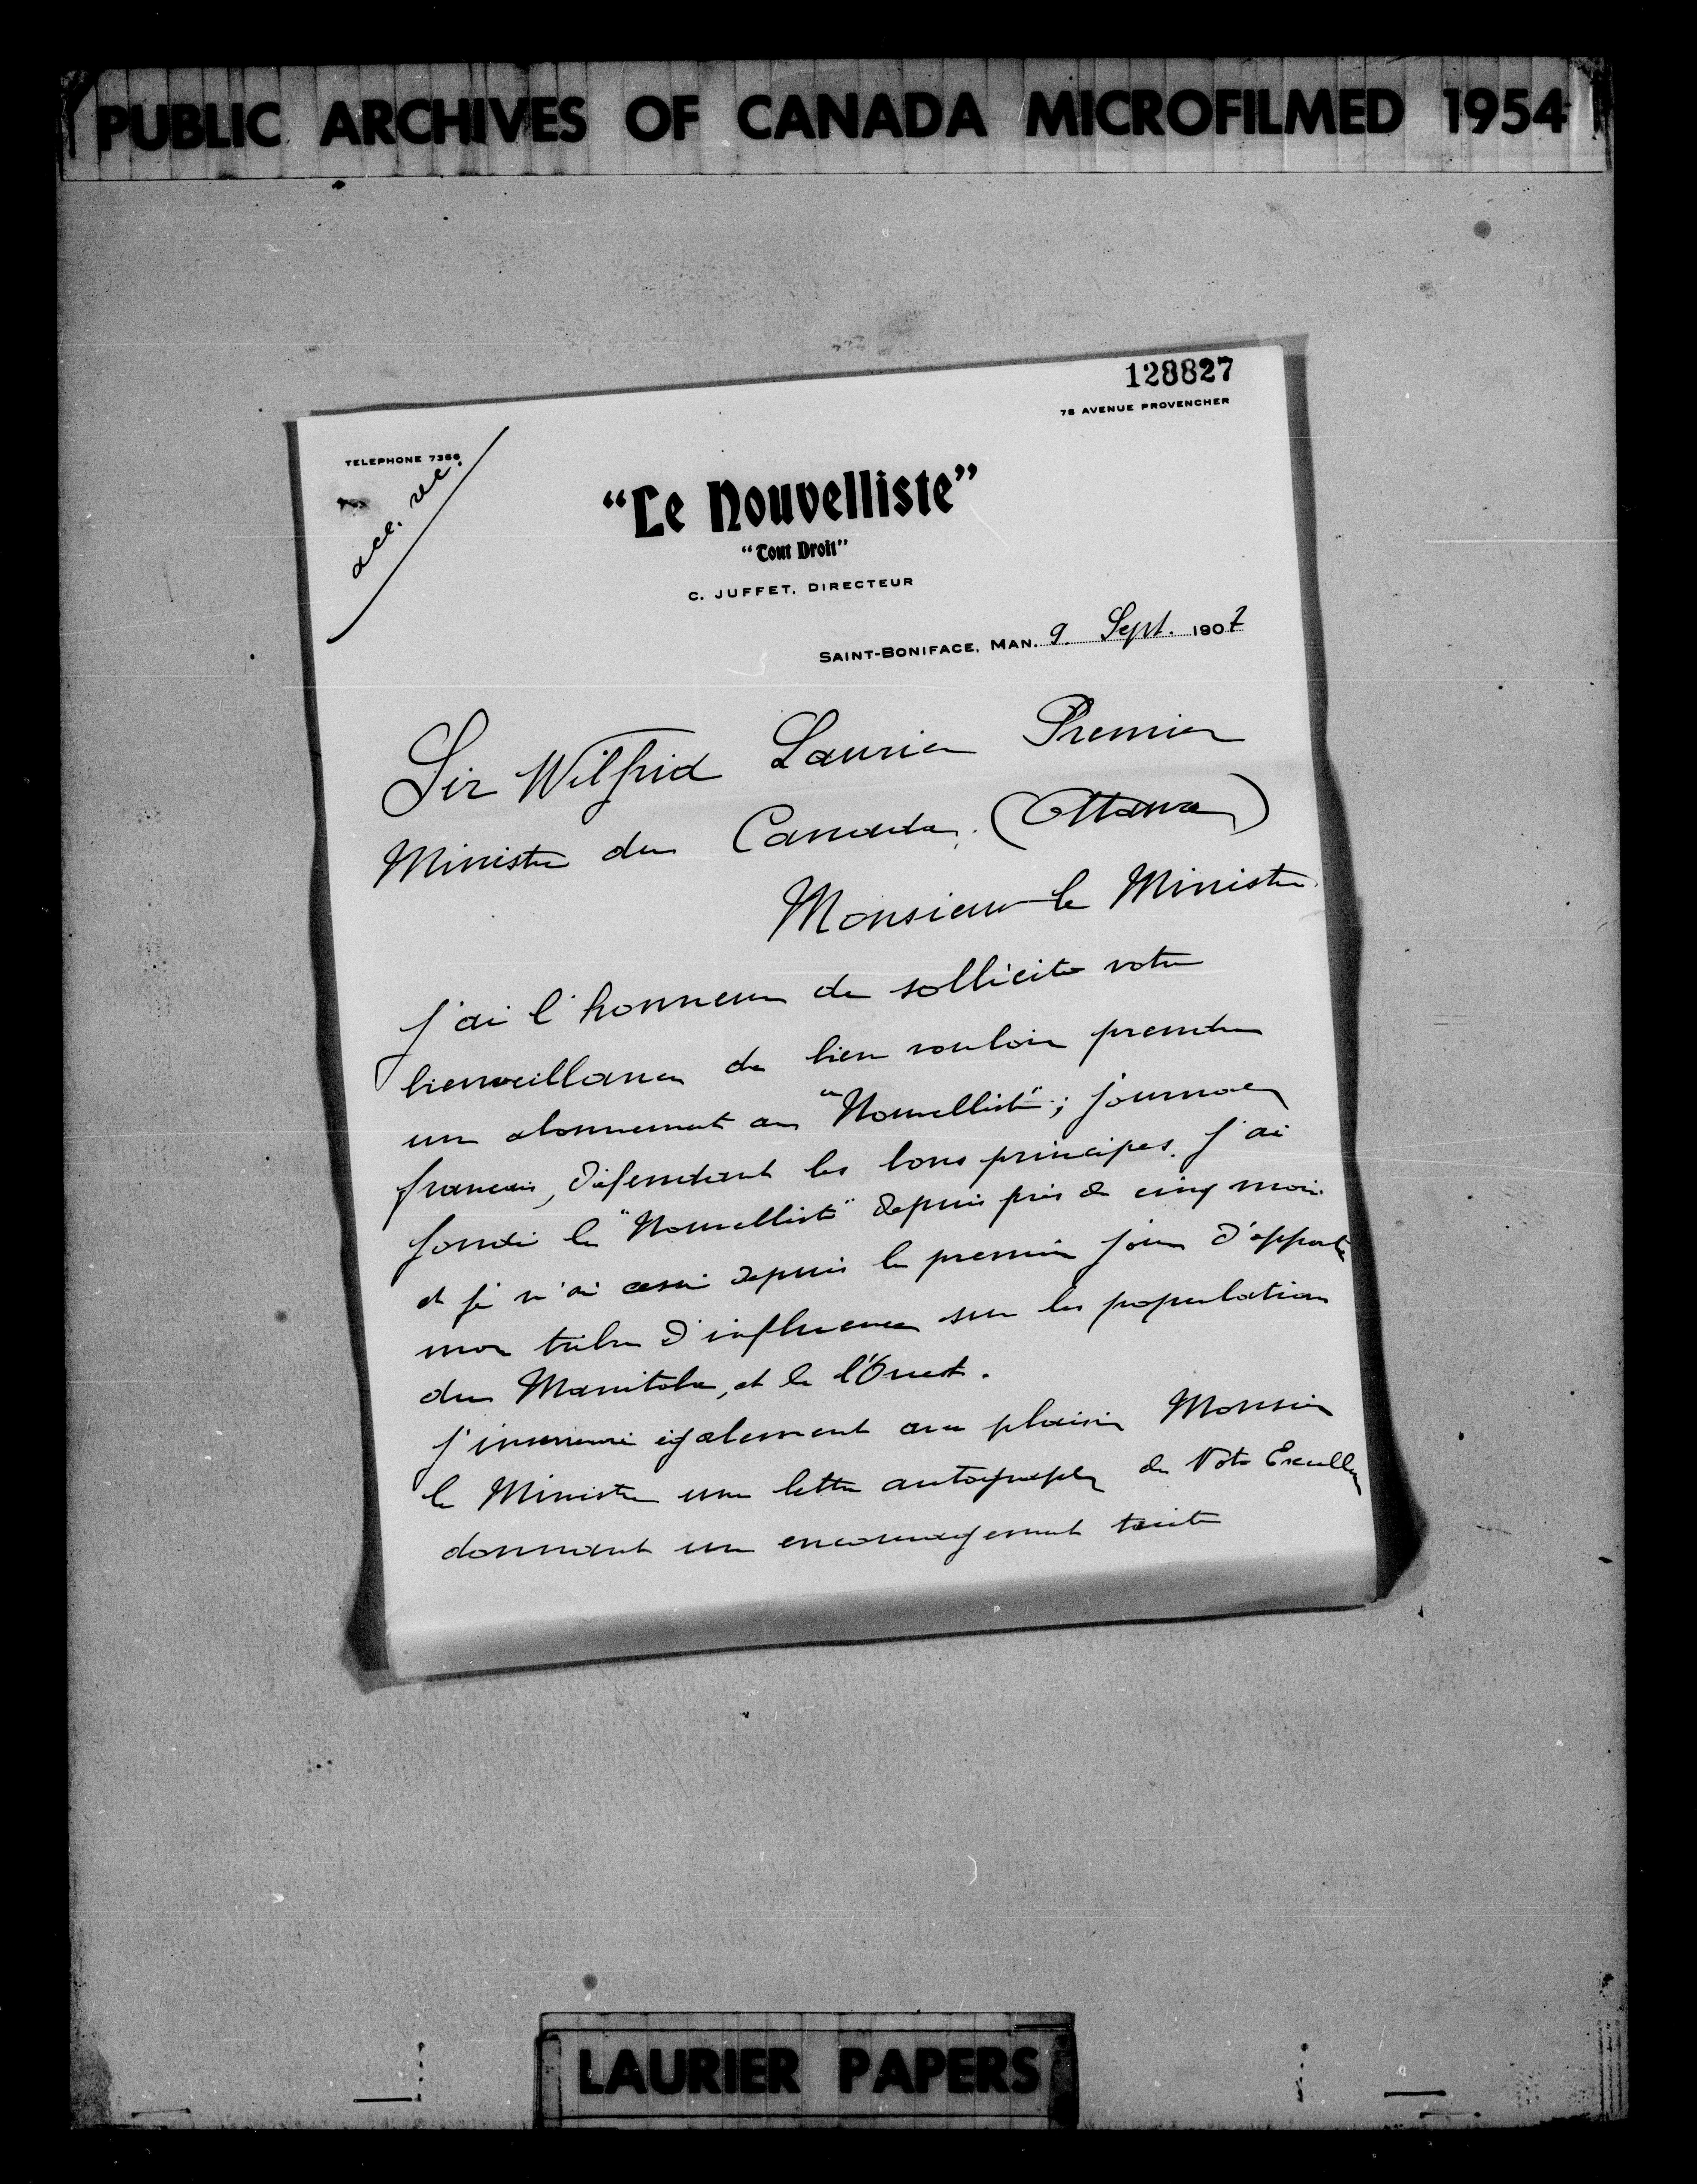 PUBLIC ARCHIVES OF CANADA MICROFILMED 1954
128827
78 AVENUE PROVENCHER
TELEPHONE 7356
acc. rec.
"Le Nouvelliste"
"Tout Droit"
C. JUFFET, DIRECTEUR
SAINT-BONIFACE, MAN. 9 Sept. 1907
Sir Wilfrid Laurier Premier
Ministre du Canada. (Ottawa)
Monsieur le Ministre
J'ai l'honneur de solliciter votre
bienveillance de bien vouloir prendre
un abonnement au "Nouvelliste"; journal
francais, défendant les bons principes. J'ai
fondé le "Nouvelliste" depuis près de cinq mois
et je n'ai cessé depuis le premier jour d'apporter
mon tribu d'influence sur les population
du Manitoba, et de l'Ouest.
J'insererai également avec plaisir Monsieur
le Ministre une lettre autographe de Votre Excellence
donnant un encouragement
LAURIER PAPERS